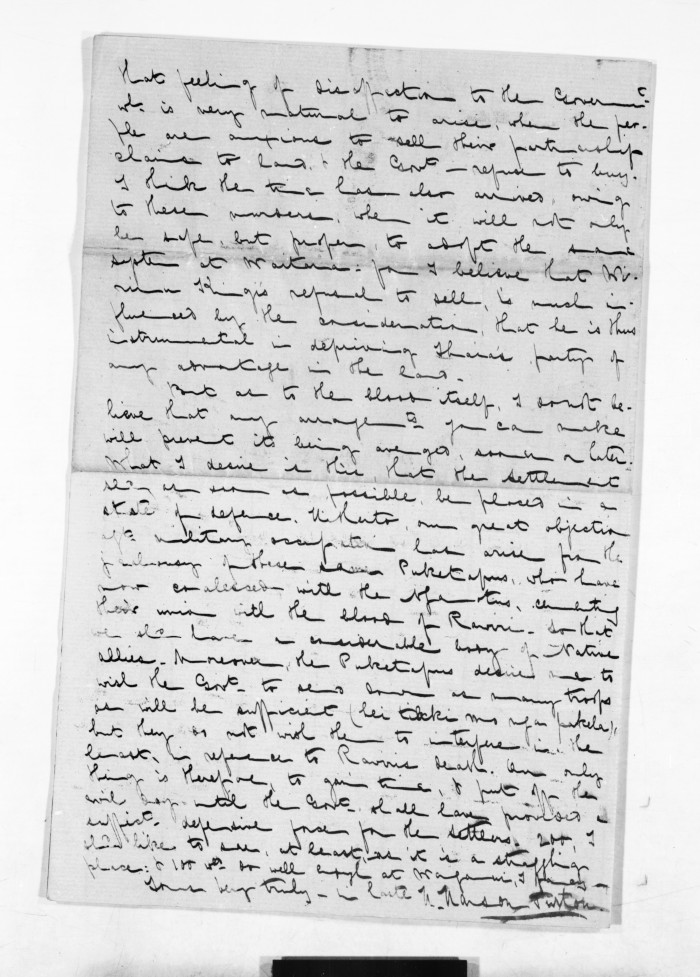 that feeling of disaffection to the Governmt.
wh. is very natural to arise, when the peo-
ple are anxious to sell their partnership
claims to land, & the Govt. refuse to buy.
I think the time has also arrived, owing
to these murders, when it will not only
be safe, but proper, to adopt the same
system at Waitara - for I believe that Wi-
remu Kingi's refusal to sell, is much in-
fluenced by the consideration, that he is thus
instrumental in depriving Ihaia's party of
any advantage in the land.
But as to the blood itself, I do not be-
lieve that any arrangemts. you can make
will prevent its being avenged, sooner or later.
What I desire is this, that the settlement
shd. as soon as possible, be placed in a
state of defence. Hitherto, our great objection
to military occupation has arise from the
jealousy of these same Puketapus, who have
now coalesced with the Ngatiruanuis, cementing
their union with the blood of Rawiri - So that
we shd. have a considerable body of Native
allies. Moreover, the Puketapus desire me to
wish the Govt. to send down as many troops
as will be sufficient (hei tiaki mo nga pakeha),
but they do not wish them to interfere in the
least, in reference to Rawiri's death. Our only
thing is therefore, to gain time, & put off the
evil day, until the Govt. shall have provided a
suffict. defensive force for the settlers. 200, I
shd. like to see, at least, as it is a straggling
place; & 100 wd. do well enough at Waganui, I fancy -
Yours very truly - in haste H. Hanson Turton